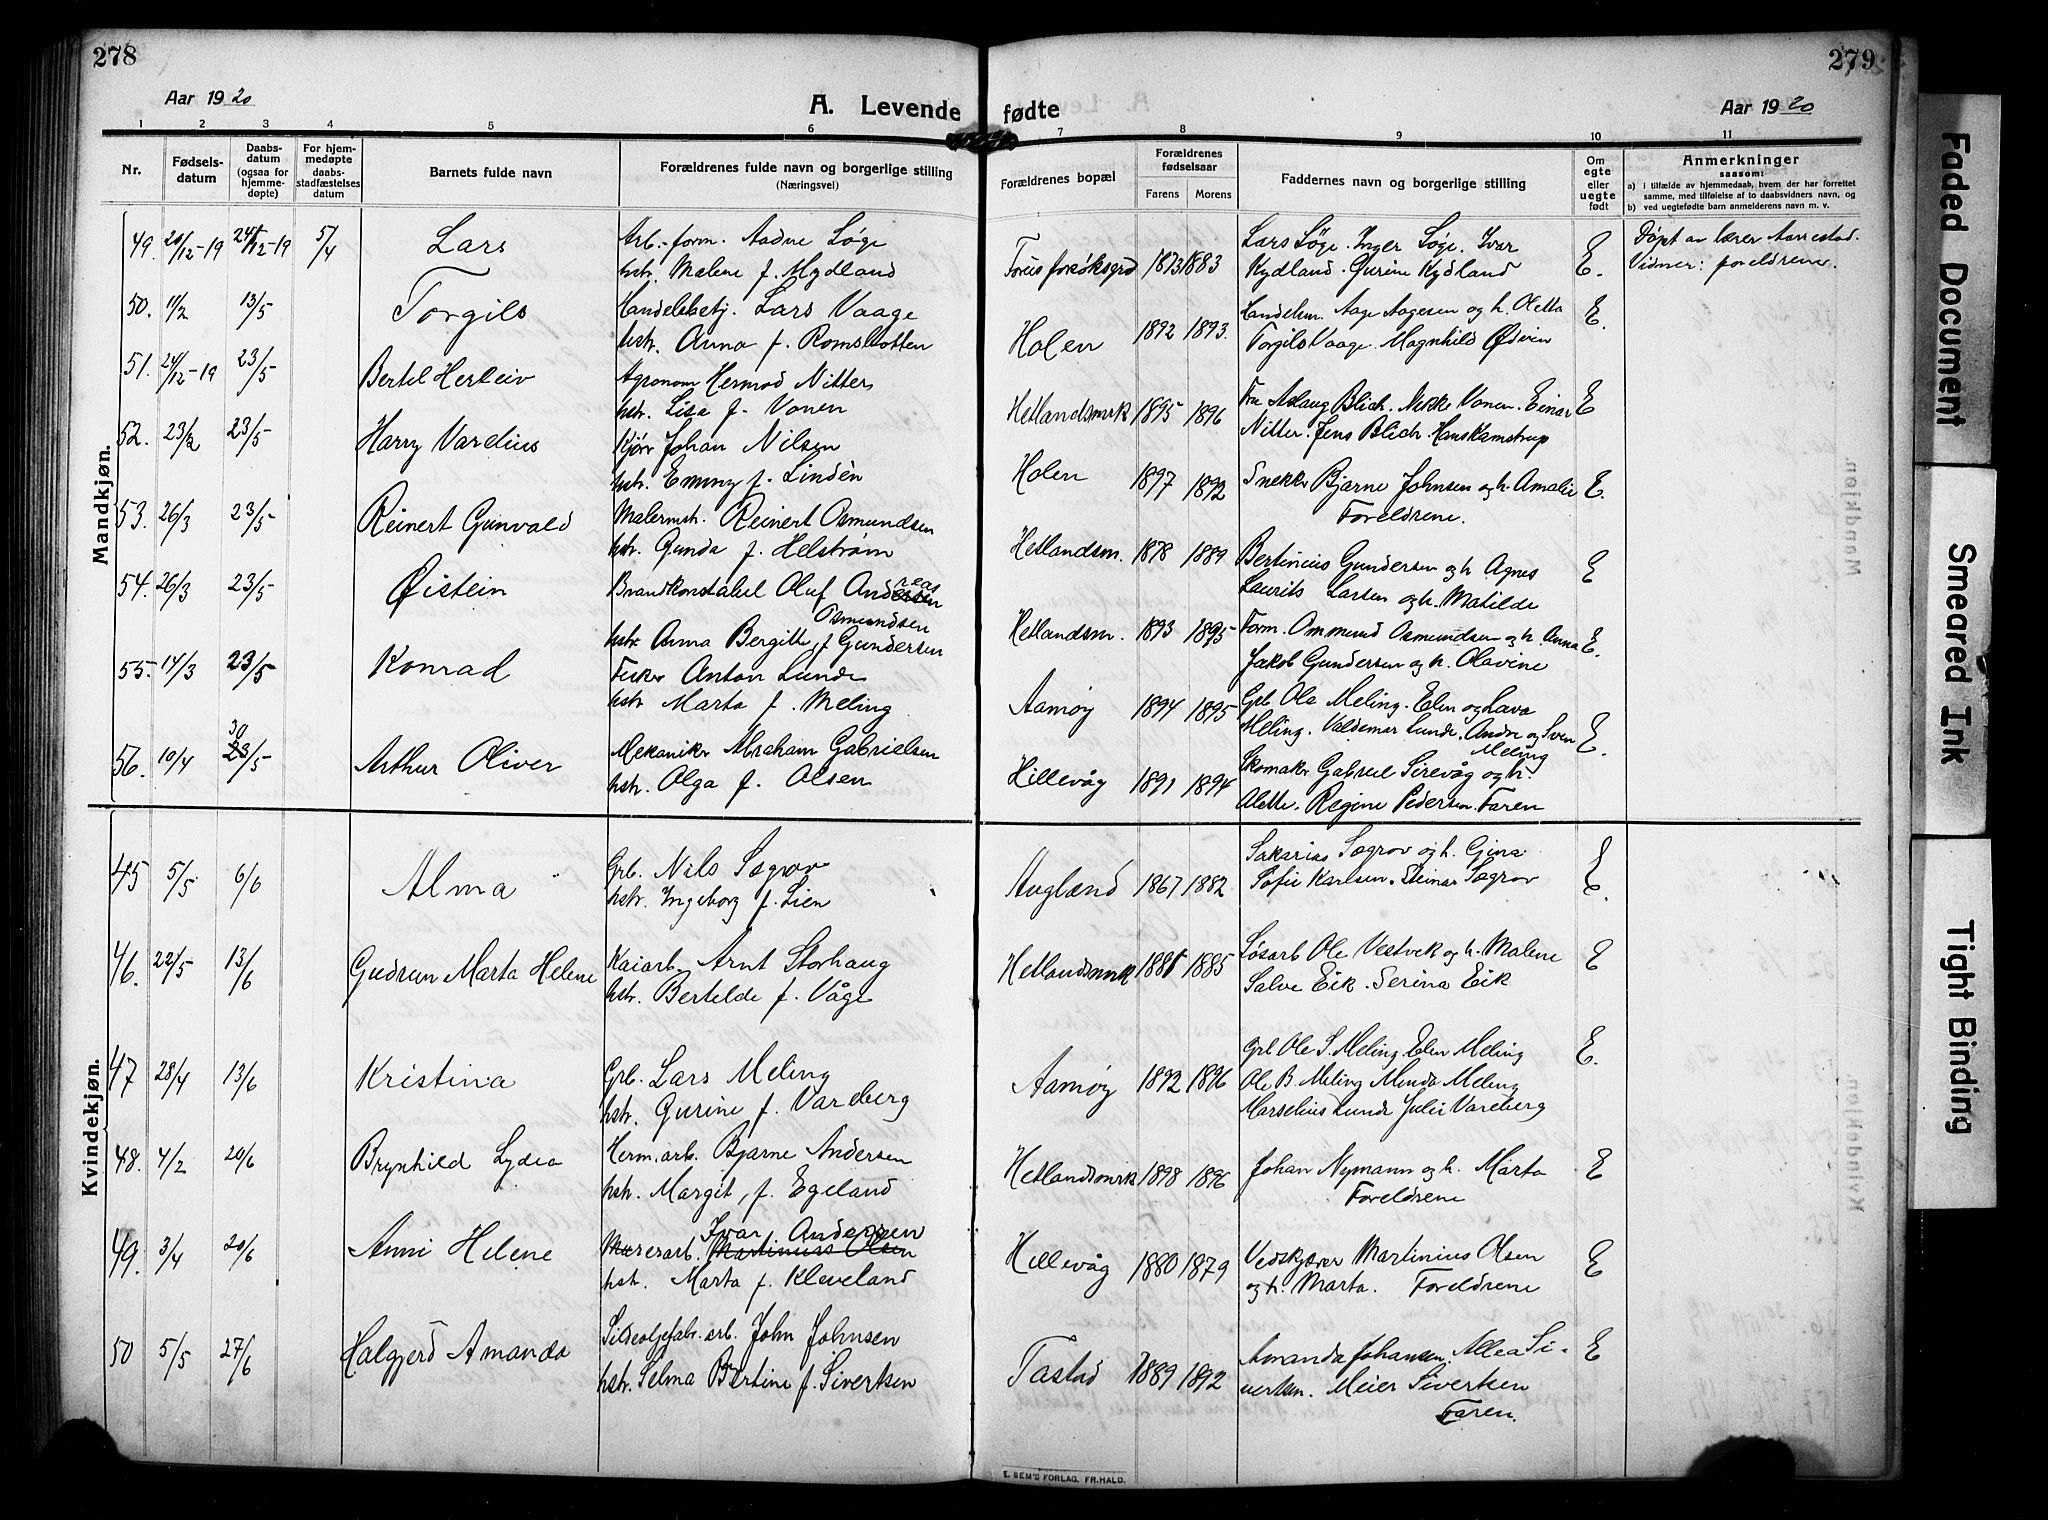 278
Aar 1920
A. Levende
1 2 3 4 5 6
Nr.
Fødsels-
datum
Daabs-
datum
(ogsaa for
hjemme-
døpte)
For hjem-
medøpte
daabs-
stadfæstelses
datum
Barnets fulde navn
Forældrenes fulde navn og borgerlige stilling
(Næringsvei)
Mandkjøn.
49. 20/12-19 24/12-19 5/4 Lars Arb.-form. Aadne Søge
hstr. Malene f. Mydland
50. 11/2 13/5 Torgils Handelsbetj. Lars Vaage
hstr. Anna f. Romslotten
51. 24/12-19 23/5 Bertel Herleiv Agronom Hermod Nitter
hstr. Lisa f. Vonen
52. 23/2 23/5 Harry Vardius Kjørr Johan Nilsen
hstr. Emmy f. Lindèn
53. 26/3 23/5 Reinert Gunvald Malermstr. Reinert Osmundsen
hstr. Gunda f. Helstrøm
54. 26/3 23/5 Øistein Brandkonstabel Oluf Andreas
Osmundsen
hstr. Anna Bergitte f Gundersen
55. 14/3 23/5 Konrad Fisker Anton Lunde
hstr. Marta f. Meling
56. 10/4 30/5 Arthur Oliver Mekaniker Abraham Gabrielsen
hstr. Olga f. Olsen
Kvindekjøn.
45 5/5 6/6 Alma Grb. Nils Sægrov
hstr. Ingeborg f. Lien
46. 22/5 13/6 Gudrun Marta Helene Kaiarb. Arnt Storhaug
hstr. Bertilde f. Våge
47 28/4 13/6 Kristina Grb. Lars Meling
hstr. Gurine f. Vareberg
48. 4/2 20/6 Brynhild Lydia Herm.arb. Bjarne Andersen
hstr. Margit, f. Egeland
49. 3/4 20/6 Anni Helene Murerarb. Martinius Olsen
Ivar Andersen
hstr. Marta f. Kleveland
50 5/5 27/6 Halgjerd Amanda Sildeoljefabr. arb. John Johnsen
hstr. Selma Bertine f. Sivertsen
279
Aar 1920
fødte
7 8 9 10 11
Forældrenes bopæl
Forældrenes
fødselsaar
Farens Morens
Faddernes navn og borgerlige stilling
Om
egte
eller
uegte
født
Anmerkninger
saasom:
a) i tilfælde av hjemmedaab, hvem der har forrettet
samme, med tilføielse af to daabsvidners navn, og
b) ved uegtefødte barn anmelderens navn m. v.
Forus forsøksgrd 1873 1883 Lars Søge. Inger Søge. Ivar
Kydland. Gurine Kydland E. Døpt av lærer Aarrestad.
Vidner: foreldrene.
Holen 1892 1893. Handelsm. Aage Aagesen og h. Oletta
Torgils Vaage. Magnhild Ødvin E.
Hetlandsmrk 1895 1896 Fru Aslaug Blich. Nikke Vonen. Einar
Nitter. Jens Blich. Hans Kamstrup E
Holen 1897 1892 Snekker Bjarne Johnsen og h. Amalie
Foreldrene. E.
Hetlandsm. 1878 1889 Bertinius Gundersen og h. Agnes
Laurits Larsen og h. Matilde E
Hetlandsm. 1893 1895 Form. Ommund Osmundsen og h. Anna
Jakob Gundersen og h. Olavine E.
Aamøy 1894 1895 Grb. Ola Meling. Elen og Lava
Meling. Valdemar Lunde. Andre og Sven
Meling E.
Hillevåg 1891 1894 Skomaker Gabriel Sirevåg og h.
Alette. Regine Pedersen. Faren
Augland 1867 1882 Sakarias Sægrov og h. Gina
Sofie Karlsen. Steinar Sægrov E.
Hetlandsmrk 1881 1885 Løsarb Ole Vestvik og h. Malene
Salve Eik. Serina Eik E
Aamøy 1892 1896 Grb Ole S. Meling. Elen Meling
Ole B. Meling Menda Meling
Marselius Lunde Julie Vareberg E.
Hetlandsmrk 1898 1896 Johan Nymann og h. Marta
Foreldrene E
Hillevåg 1880 1879 Vedskjærer Martinius Olsen
og h. Marta. Foreldrene E
Tastad 1889 1892 Amanda Johansen. Allea Si-
vertsen. Meier Sivertsen
Faren. E
E. SEM'S FORLAG, FR.HALD.
Faded Document
Smeared Ink
Tight Binding